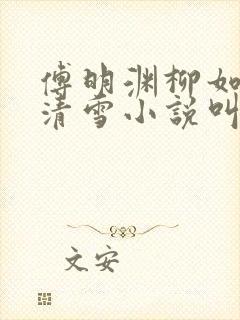 傅明渊柳如
清雪小说叫
文安